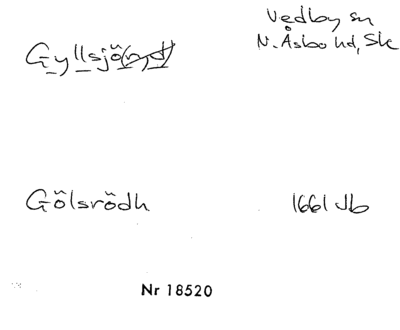 Gyllsjö(n,d)
Vedby sn
N. Åsbo hd, Sk
Gölsrödh
1661 Jb
Nr 18520